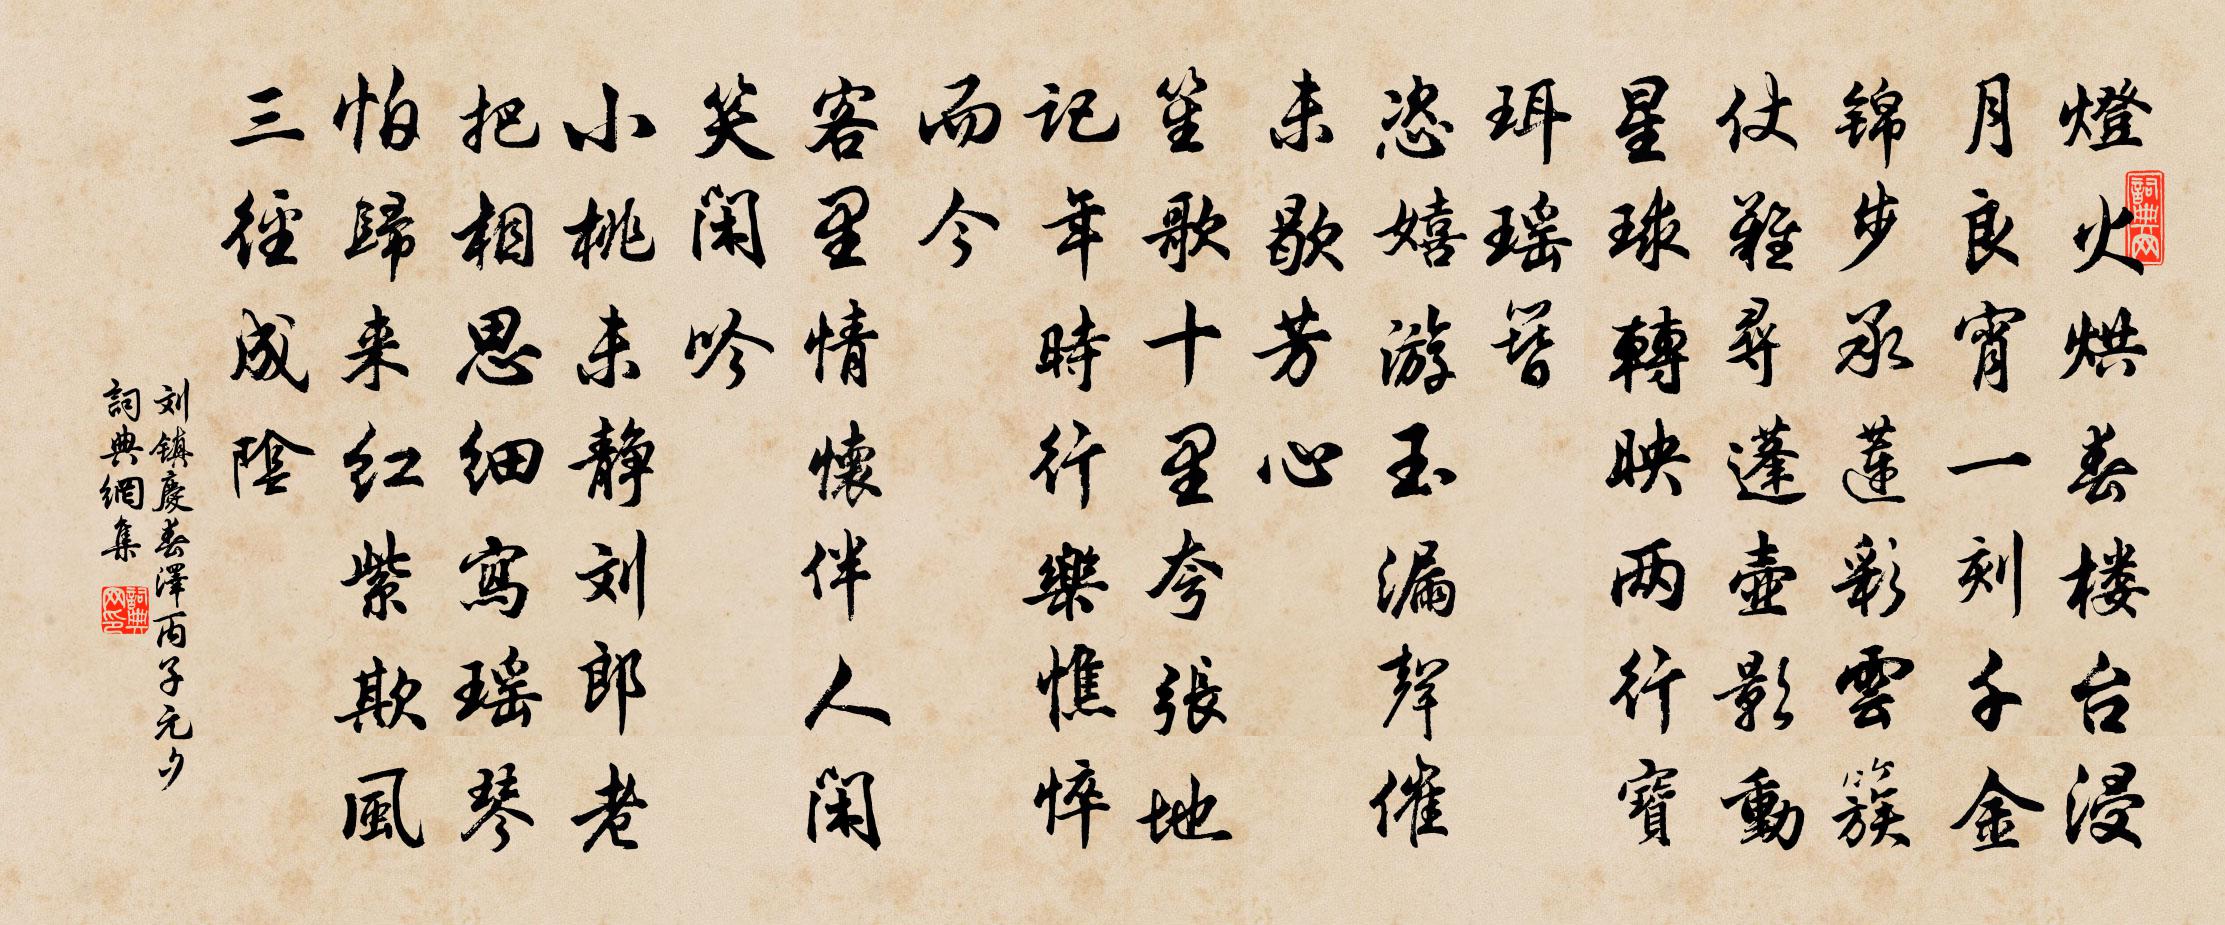 燈火烘春楼台浸
月良宵一刻千金
锦步承莲彩雲簇
仗難尋蓬壶影動
星球轉映两行寶
珥瑶簪
恣嬉游玉漏聲催
未歇芳心
笙歌十里夸張地
记年時行樂憔悴
而今
客里情懷伴人闲
笑闲吟
小桃未静刘郎老
把相思细寫瑶琴
怕歸来红紫欺風
三徑成陰
刘镇慶春澤丙子元夕
詞典網集
詞典网
詞典网印